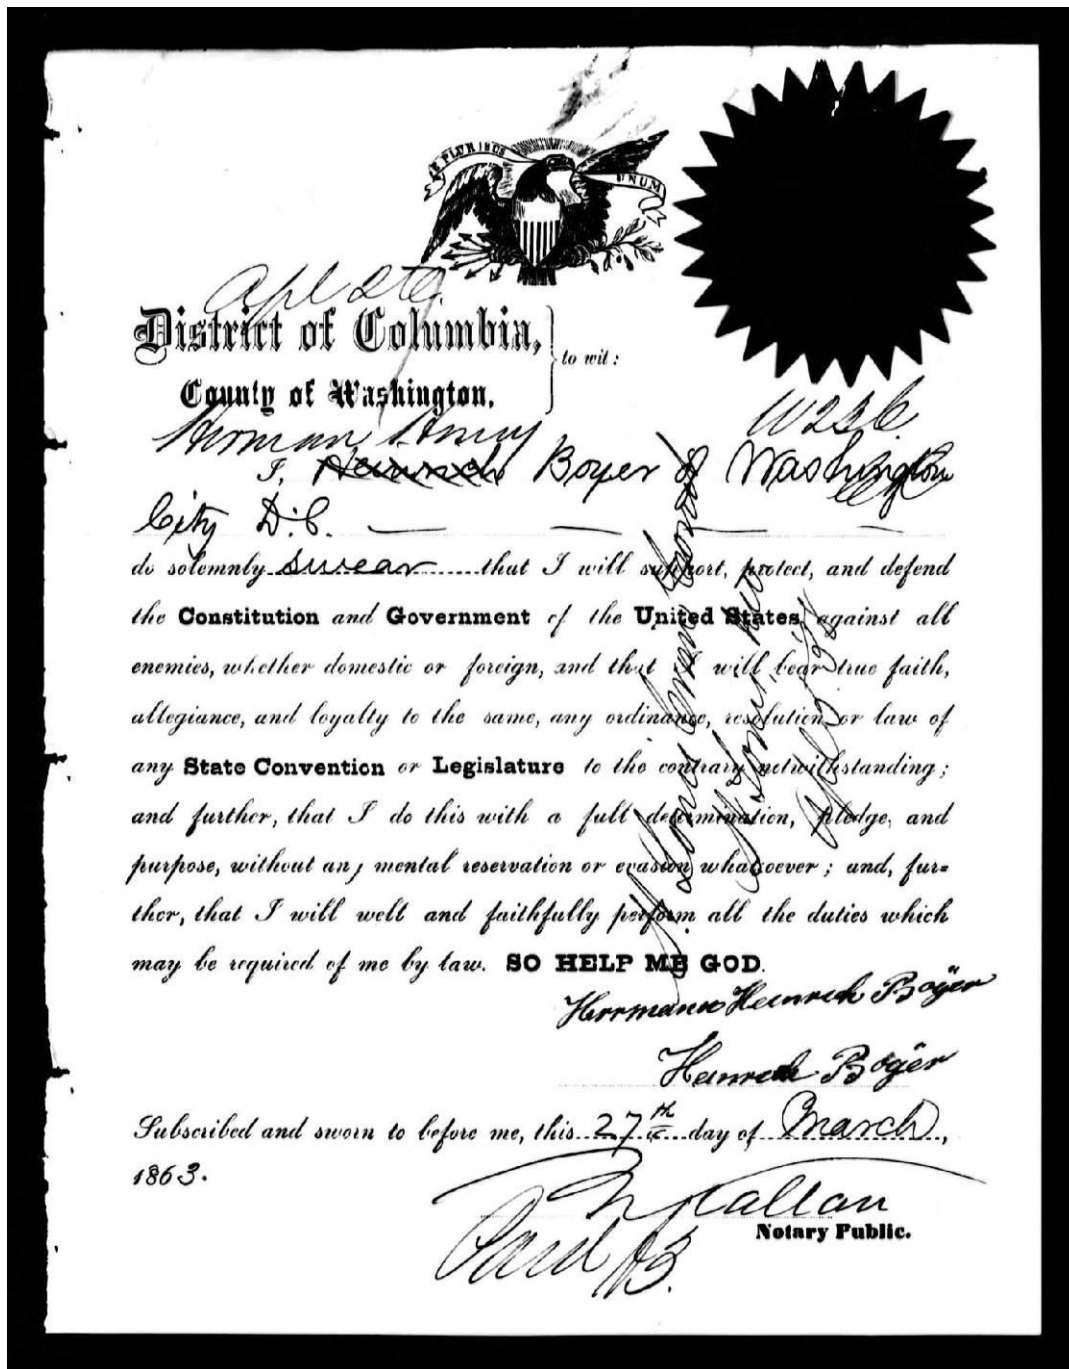 E PLURIBUS UNUM
District of Columbia,
to wit:
County of Washington.
Herman Henry
I, Heinrich Boyer of Washington
City D.C.
do solemnly swear that I will support, protect, and defend
the Constitution and Government of the United States against all
enemies, whether domestic or foreign, and that I will bear true faith,
allegiance, and loyalty to the same, any ordinance, resolution or law of
any State Convention or Legislature to the contrary notwithstanding;
and further, that I do this with a full determination, pledge, and
purpose, without any mental reservation or evasion whatsoever; and, fur=
ther, that I will well and faithfully perform all the duties which
may be required of me by law. SO HELP ME GOD.
Herrmann Heinrich Böÿer
Heinrich Böÿer
Subscribed and sworn to before me, this 27th day of March,
1863.
N Callan
Notary Public.
Paid